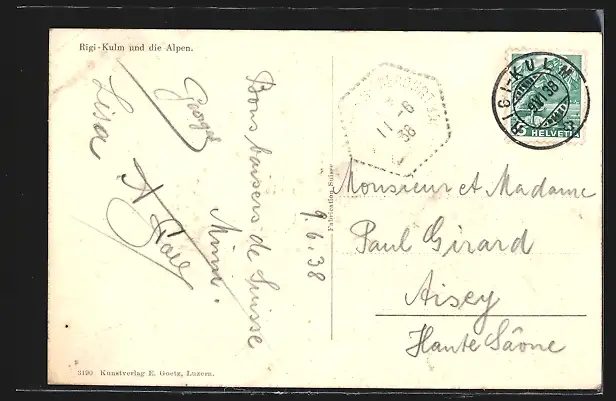 Rigi-Kulm und die Alpen.
Bons baisers de Suisse
Mimi.
9.6.38
Georges
Lisa
Fabrication Suisse
11-6
38
RIGI-KULM
9.VI.38
5 HELVETIA
Monsieur et Madame
Paul Girard
Aisey
Haute Saône
3190 Kunstverlag E. Goetz, Luzern.